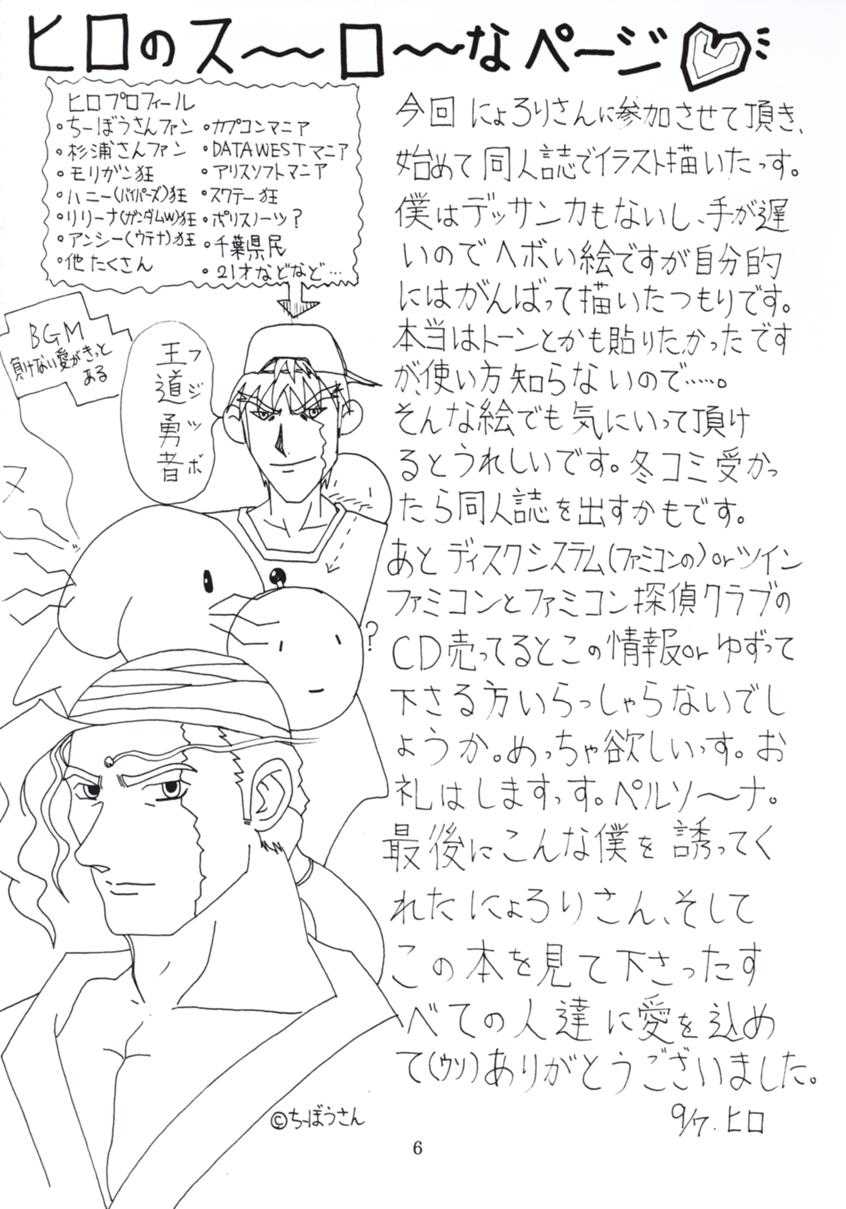 ヒロのス〜〜ロ〜〜なページ
ヒロプロフィール
・ちーぼうさんファン
・杉浦さんファン
・モリガン狂
・ハニー(バイパーズ)狂
・リリーナ(ガンダムW)狂
・アンシー(ウテナ)狂
・他たくさん
・カプコンマニア
・DATAWESTマニア
・アリスソフトマニア
・スクテー狂
・ポリスノーツ?
・千葉県民
・21才などなど…
BGM
負けない愛がきっと
ある
王道勇者
フジツボ
ヌ
?
今回にょろりさんに参加させて頂き、
始めて同人誌でイラスト描いたっす。
僕はデッサンカもないし、手が遅
いのでヘボい絵ですが自分的
にはがんばって描いたつもりです。
本当はトーンとかも貼りたかったです
が、使い方知らないので……。
そんな絵でも気にいって頂け
るとうれしいです。冬コミ受かっ
たら同人誌を出すかもです。
あとディスクシステム(ファミコンの)orツイン
ファミコンとファミコン探偵クラブの
CD売ってるとこの情報orゆずって
下さる方いらっしゃらないでし
ょうか。めっちゃ欲しいっす。お
礼はしますっす。ペルソ〜ナ。
最後にこんな僕を誘ってく
れたにょろりさん、そして
この本を見て下さったす
べての人達に愛を込め
て(ウソ)ありがとうございました。
9/7.ヒロ
©ちーぼうさん
6